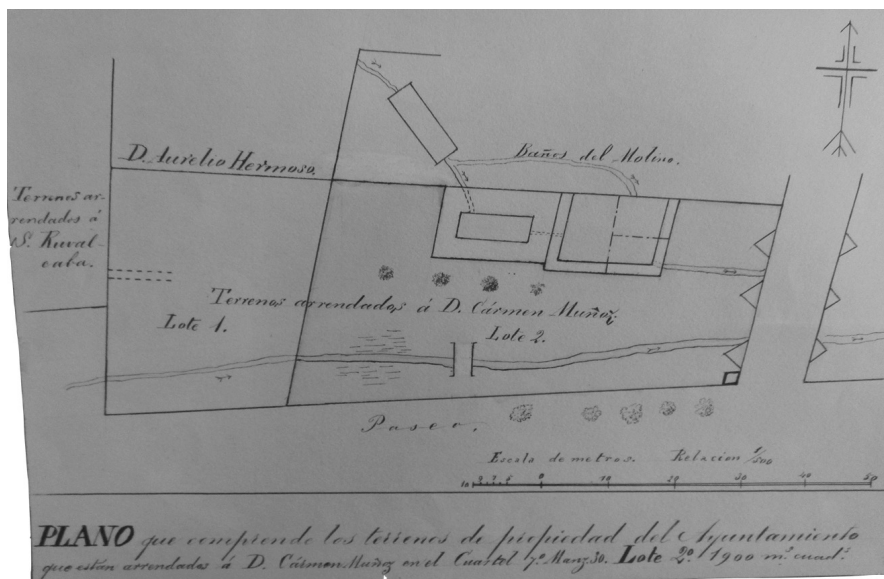 D. Aurelio Hermoso.
Baños del Molino.
Terrenos ar-
rendados á
S. Ruval-
caba.
Terrenos arrendados á D. Cármen Muñoz
Lote 1.
Lote 2.
Paseo.
Escala de metros. Relacion 1/500
10 0 10 20 30 40 50
PLANO que comprende los terrenos de propiedad del Ayuntamiento
que están arrendados á D. Cármen Muñoz en el Cuartel 7º Manz 30. Lote 2º 1900 m.² cuadº.